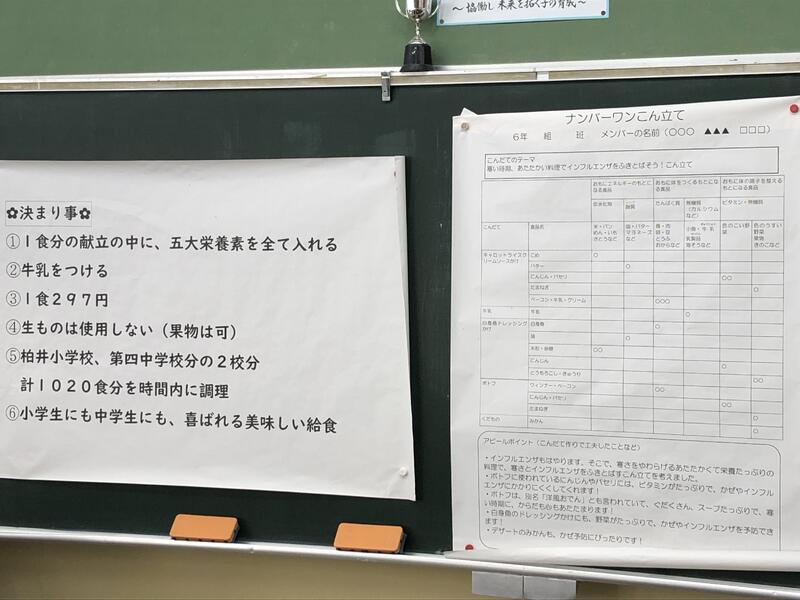 ～協働し 未来を拓く子の育成～
✿決まり事✿
①１食分の献立の中に、五大栄養素を全て入れる
②牛乳をつける
③１食２９７円
④生ものは使用しない（果物は可）
⑤柏井小学校、第四中学校分の２校分
計１０２０食分を時間内に調理
⑥小学生にも中学生にも、喜ばれる美味しい給食
ナンバーワンこん立て
６年　組　班　メンバーの名前（○○○　▲▲▲　□□□）
こんだてのテーマ
寒い時期、あたたかい料理でインフルエンザをふきとばそう！こん立て
おもにエネルギーのもとになる食品 おもに体をつくるもとになる食品 おもに体の調子を整えるもとになる食品
炭水化物 脂質 たんぱく質 無機質（カルシウムなど） ビタミン・無機質
こんだて 食品名 米・パン めん・いも さとうなど 油・バター マヨネーズ など 魚・肉 卵・豆 とうふ おからなど 小魚・牛乳 乳製品 海そうなど 色のこい野菜 色のうすい野菜 果物 きのこなど
キャロットライスクリームソースかけ こめ ○
バター ○
にんじん・パセリ ○○
たまねぎ ○
ベーコン・牛乳・クリーム ○○○
牛乳 牛乳 ○
白身魚ドレッシングかけ 白身魚 ○
油 ○
米粉・砂糖 ○○
にんじん ○
とうもろこし・きゅうり ○○
ポトフ ウィンナー・ベーコン ○○
にんじん・パセリ ○○
たまねぎ ○
くだもの みかん ○
アピールポイント（こんだて作りで工夫したことなど）
・インフルエンザもはやります。そこで、寒さをやわらげるあたたかくて栄養たっぷりの
料理で、寒さとインフルエンザをふきとばすこん立てを考えました。
・ポトフに使われているにんじんやパセリには、ビタミンがたっぷりで、かぜやインフル
エンザにかかりにくくしてくれます！
・ポトフは、別名「洋風おでん」とも言われていて、ぐだくさん、スープたっぷりで、寒
い時期に、からだも心もあたたまります！
・白身魚のドレッシングかけにも、野菜がたっぷりで、かぜやインフルエンザを予防でき
ます！
・デザートのみかんも、かぜ予防にぴったりです！